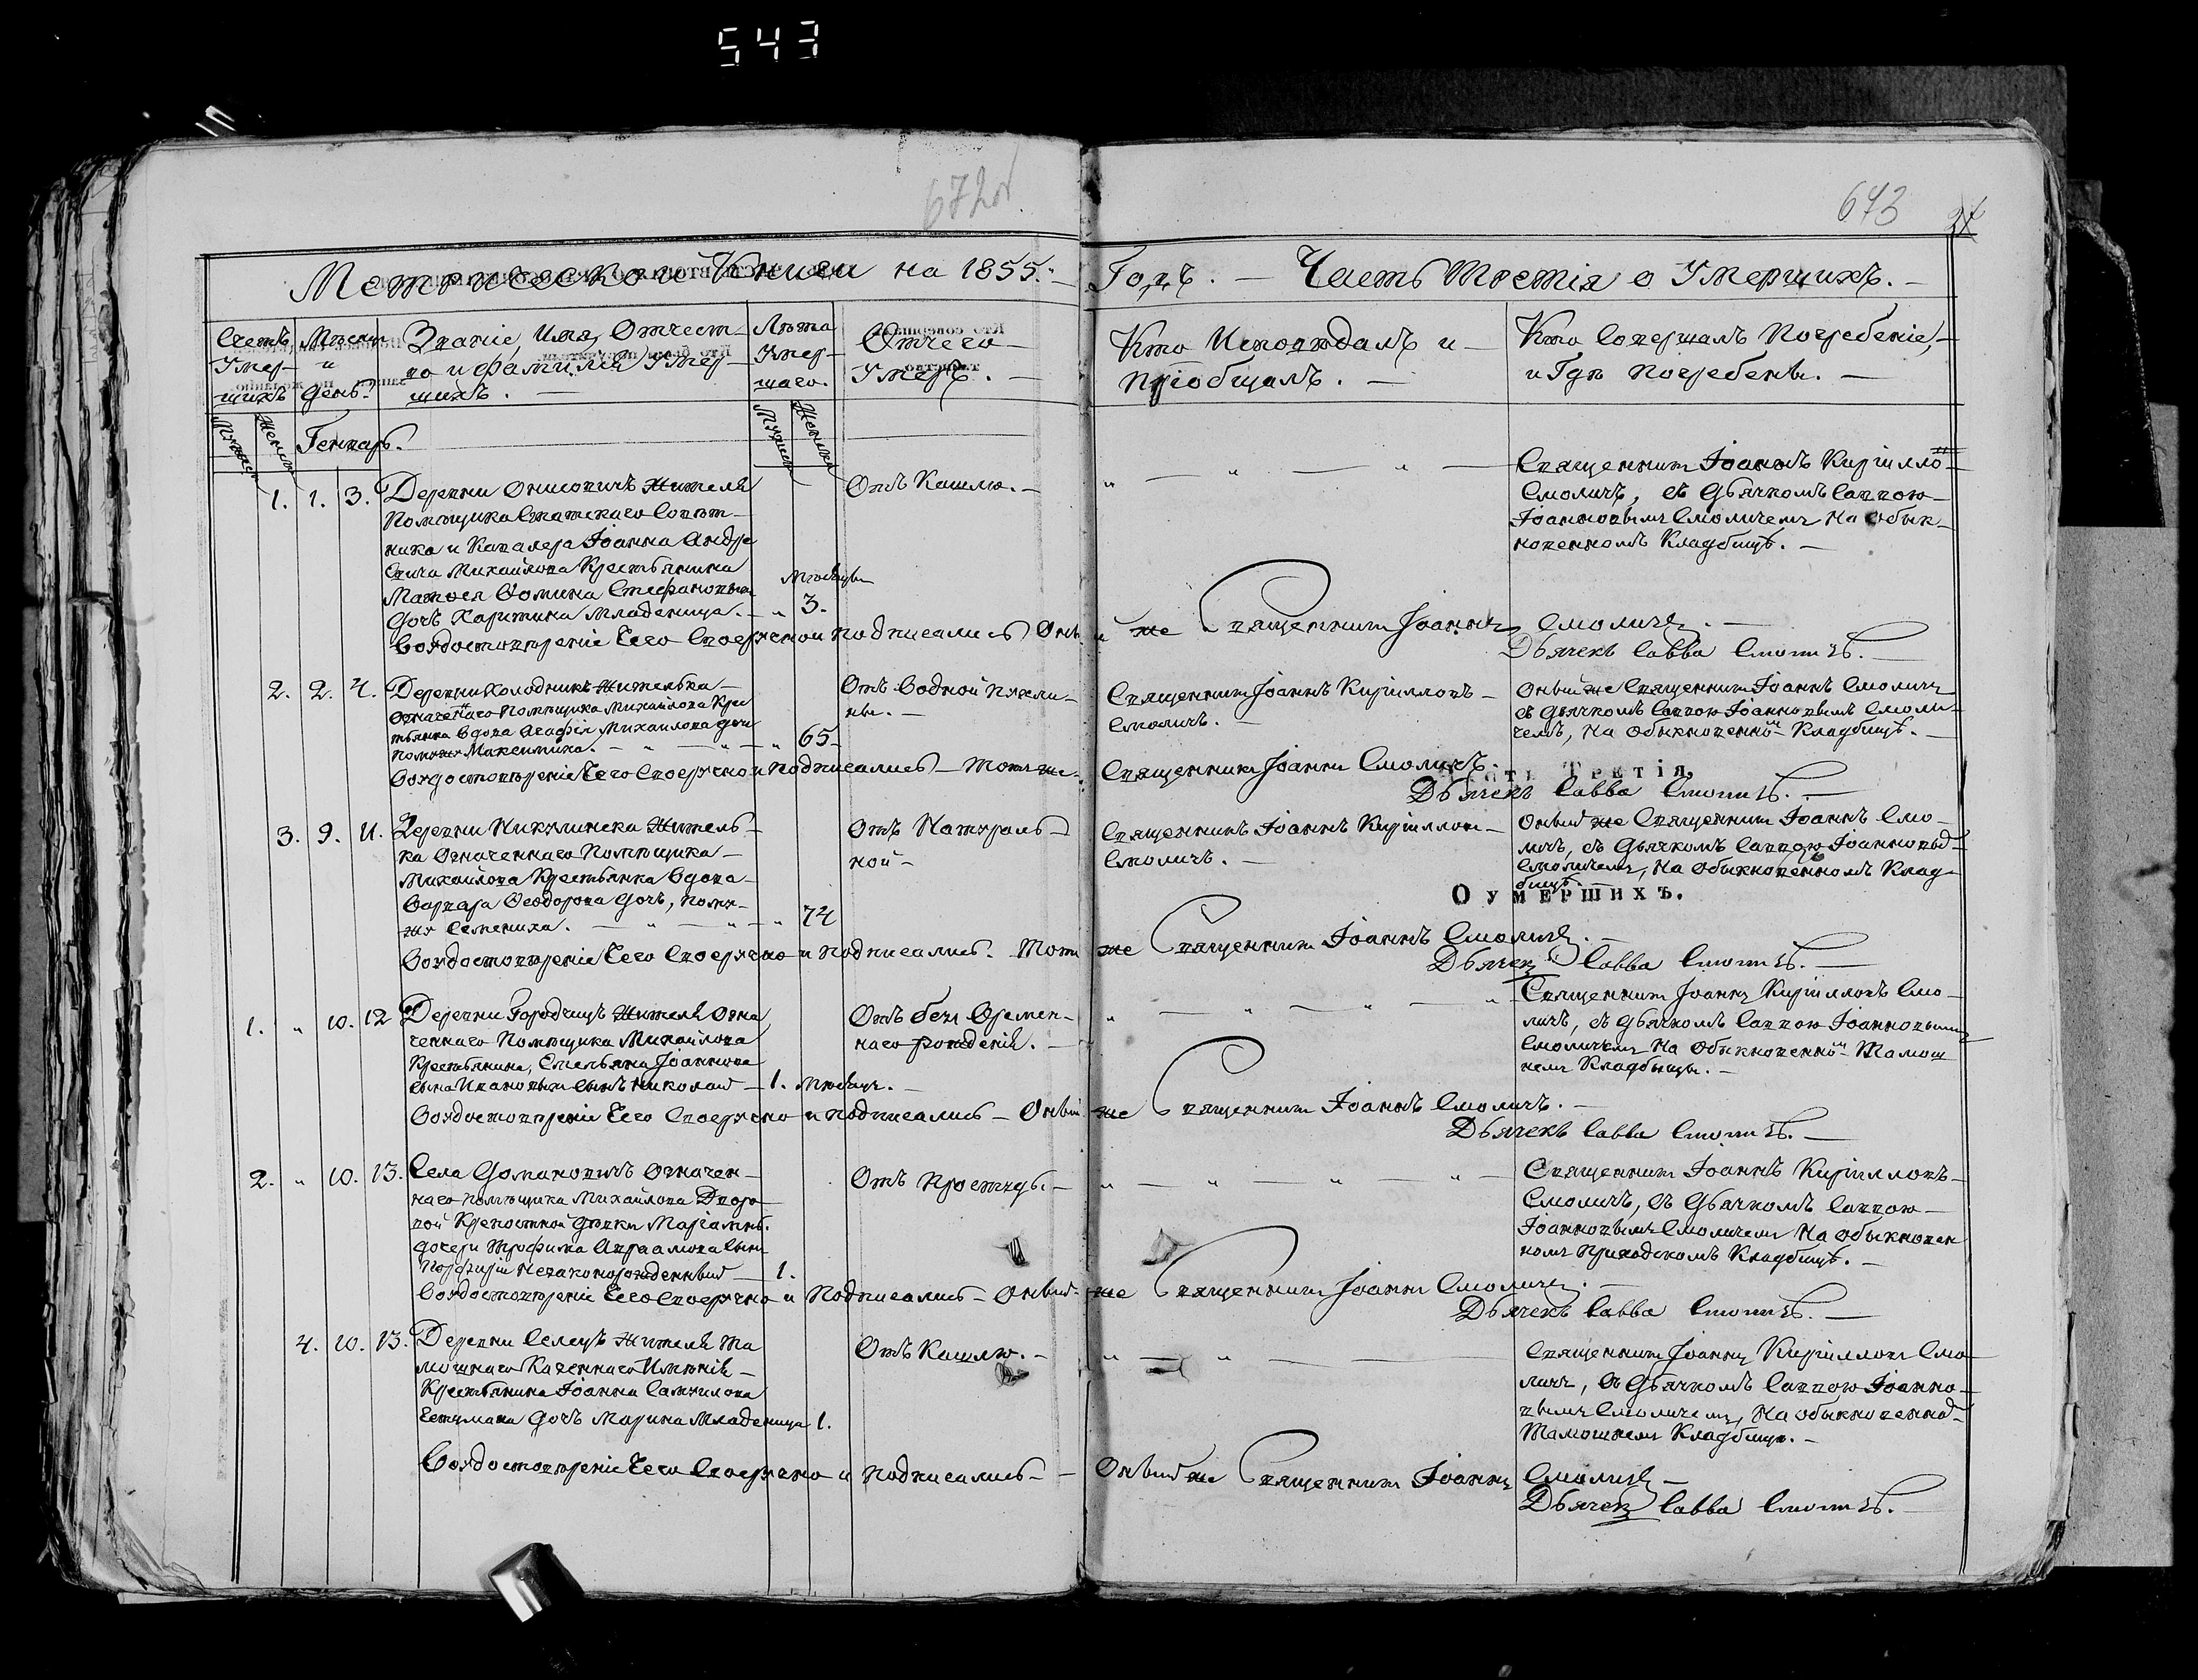 543
672об
673
Метрической Книги на 1855.- Годъ. - Часть Третія о Умершихъ. -
Счетъ Умер- шихъ
Мѣсяцъ и День
Званіе, Имя, Отчест-
во и фамилія Умер-
шихъ. -
Лѣта Умер- шаго.
Отчего Умеръ. -
Кто Исповѣдалъ и
Пріобщалъ. -
Кто Совершалъ Погребеніе,
и Гдѣ Погребены. -
Мужеск Женск
Генварь.
Мужеск Женска
1. 1. 3.
Деревни Онисовичъ Жителя
Помѣщика Статскаго Совѣт-
ника и Кавалера Іоанна Андре
евича Михайлова Крестьянина
Матѳея Ѳомина Стефановыхъ
Дочь Харитина Младеница. -
Мѣсяцы
3.
Отъ Кашлю. -
Священникъ Іоаннъ Кирилло-
Смоличъ, съ Дьячкомъ Саввою
Іоанновымъ Смоличемъ На Обык-
новенномъ Кладбищѣ. -
Во удостовѣреніе Сего Своеручно и подписались Оный же Священникъ Іоаннъ Смоличъ. -
Дьячекъ Савва Смоличъ. -
2. 2. 4.
Деревни Холодникъ Жителька
Означеннаго Помѣщика Михайлова Крес
тьянка Вдова Агафія Михайлова дочь
помужу Максимиха. -
65
Отъ Водной Пухли-
ны. -
Священникъ Іоаннъ Кирилловъ
Смоличъ. -
Оный же Священникъ Іоаннъ Смоличъ
съ Дьячкомъ Саввою Іоанновымъ Смоли-
чемъ, На Обыкновенно- Кладбищѣ. -
Во удостовѣреніе Сего Своеручно и подписались - Тотъ же - Священникъ Іоаннъ Смоличъ.
Часть Третія,
Дьячекъ Савва Смоличъ. -
3. 9. 11.
Деревни Никулинска Житель-
ка Означеннаго Помѣщика
Михайлова Крестьянка Вдова
Варвара Ѳеодорова дочь, пому-
жу Семениха. -
74
Отъ Натураль-
ной -
Священникъ Іоаннъ Кирилловъ
Смоличъ. -
Оный же Священникъ Іоаннъ Смо-
личъ, съ Дьячкомъ Саввою Іоанновы-
Смоличемъ, На Обыкновенномъ Клад-
бищѣ. -
О УМЕРШИХЪ.
Во удостовѣреніе Сего Своеручно и подписались. Тотъ же Священникъ Іоаннъ Смоличъ. -
Дьячекъ Савва Смоличъ. -
1. " 10. 12
Деревни Городчицъ Жителя Озна
ченнаго Помѣщика Михайлова
Крестьянина, Емельяна Іоаннова
сына Ивановыхъ Сынъ Николай - 1. Мѣсяцъ. -
Отъ без Времен-
наго рожденія. -
Священникъ Іоаннъ Кирилловъ Смо-
личъ, съ Дьячкомъ Саввою Іоанновымъ
Смоличемъ На Обыкновенно- Тамош
немъ Кладбищѣ. -
Во удостовѣреніе Сего Своеручно и подписались - Оный же Священникъ Іоаннъ Смоличъ. -
Дьячекъ Савва Смоличъ. -
2. " 10. 13.
Села Домановичъ Означен-
наго помѣщика Михайлова Дворо-
вой Крепостной Дѣвки Маріанны
дочери Трофима Авраамова Сынъ
Порфирій Незаконорожденный - 1.
Отъ Простуды. -
Священникъ Іоаннъ Кирилловъ
Смоличъ, съ Дьячкомъ Саввою
Іоанновымъ Смоличемъ На Обыкновен
номъ Приходскомъ Кладбищѣ. -
Во удостовѣреніе Сего Своеручно и Подписались - Оный же Священникъ Іоаннъ Смоличъ. -
Дьячекъ Савва Смоличъ. -
4. 10. 13.
Деревни Селецъ Жителя Та
мошняго Казеннаго Имѣнія
Крестьянина Іоанна Самуилова
дочь Марина Младеница 1.
Отъ Кашлю. -
Священникъ Іоаннъ Кирилловъ Смо-
личъ, съ Дьячкомъ Саввою Іоанно-
вымъ Смоличемъ, На Обыкновенно-
Тамошнемъ Кладбищѣ. -
Во удостовѣреніе Сего Своеручно и подписались - Оный же Священникъ Іоаннъ Смоличъ -
Дьячекъ Савва Смоличъ. -